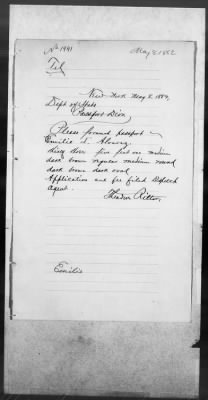 No 1991
May 8 1882
Tel
New York May 8. 1882,
Dept of State
Passport Divn
Please forward passport
Emilie L.
five feet one medium
dark brown regular medium round
dark brown dark oval
Application and fee filed Dispatch
Agent.
Theodor Ritter,
Emilie